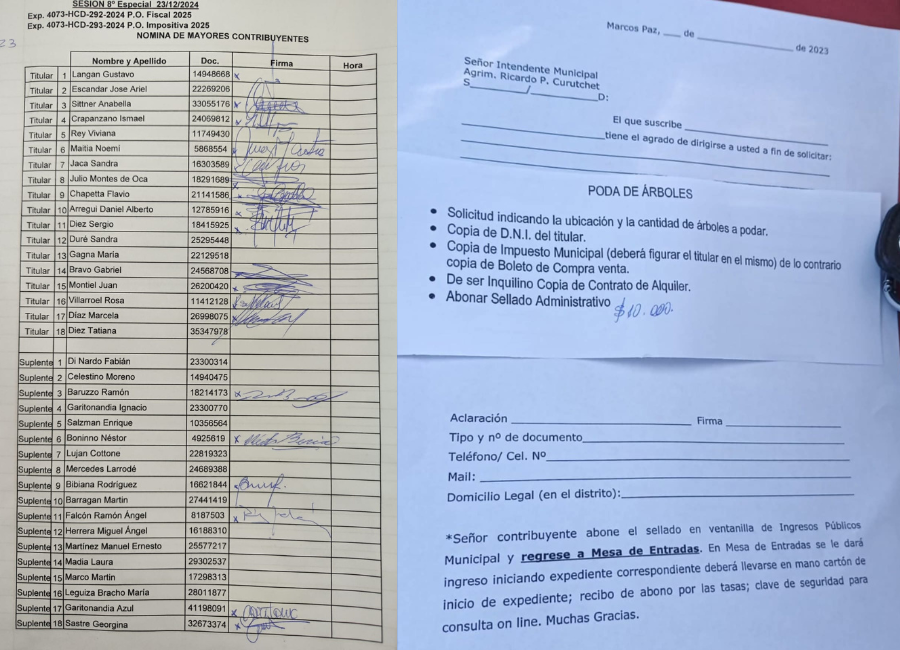 SESION 8º Especial  23/12/2024
Exp. 4073-HCD-292-2024 P.O. Fiscal 2025
Exp. 4073-HCD-293-2024 P.O. Impositiva 2025
NOMINA DE MAYORES CONTRIBUYENTES
23
Nombre y Apellido Doc. Firma Hora
Titular 1 Langan Gustavo 14948668 x
Titular 2 Escandar Jose Ariel 22269206
Titular 3 Sittner Anabella 33055176 x
Titular 4 Crapanzano Ismael 24069812 x
Titular 5 Rey Viviana 11749430
Titular 6 Maitia Noemi 5868554 x
Titular 7 Jaca Sandra 16303589
Titular 8 Julio Montes de Oca 18291689
Titular 9 Chapetta Flavio 21141586 x
Titular 10 Arregui Daniel Alberto 12785916 x
Titular 11 Diez Sergio 18415925
Titular 12 Duré Sandra 25295448
Titular 13 Gagna María 22129518
Titular 14 Bravo Gabriel 24568708
Titular 15 Montiel Juan 26200420 x
Titular 16 Villarroel Rosa 11412128
Titular 17 Díaz Marcela 26998075
Titular 18 Diez Tatiana 35347978
Suplente 1 Di Nardo Fabián 23300314
Suplente 2 Celestino Moreno 14940475
Suplente 3 Baruzzo Ramón 18214173 x
Suplente 4 Garitonandia Ignacio 23300770
Suplente 5 Salzman Enrique 10356564
Suplente 6 Boninno Néstor 4925619 x
Suplente 7 Lujan Cottone 22819323
Suplente 8 Mercedes Larrodé 24689388
Suplente 9 Bibiana Rodríguez 16621844
Suplente 10 Barragan Martin 27441419
Suplente 11 Falcón Ramón Ángel 8187503 x
Suplente 12 Herrera Miguel Ángel 16188310
Suplente 13 Martínez Manuel Ernesto 25577217
Suplente 14 Madia Laura 29302537
Suplente 15 Marco Martin 17298313
Suplente 16 Leguiza Bracho María 28011877
Suplente 17 Garitonandia Azul 41198091 x
Suplente 18 Sastre Georgina 32673374 x
Marcos Paz, ___ de ______________ de 2023
Señor Intendente Municipal
Agrim. Ricardo P. Curutchet
S________/__________D:
El que suscribe ____________________
____________________tiene el agrado de dirigirse a usted a fin de solicitar:
PODA DE ÁRBOLES
• Solicitud indicando la ubicación y la cantidad de árboles a podar.
• Copia de D.N.I. del titular.
• Copia de Impuesto Municipal (deberá figurar el titular en el mismo) de lo contrario
copia de Boleto de Compra venta.
• De ser Inquilino Copia de Contrato de Alquiler.
• Abonar Sellado Administrativo $10.000.
Aclaración ____________________ Firma ____________
Tipo y nº de documento____________________
Teléfono/ Cel. Nº____________________
Mail: ____________________
Domicilio Legal (en el distrito):____________________
*Señor contribuyente abone el sellado en ventanilla de Ingresos Públicos
Municipal y regrese a Mesa de Entradas. En Mesa de Entradas se le dará
ingreso iniciando expediente correspondiente deberá llevarse en mano cartón de
inicio de expediente; recibo de abono por las tasas; clave de seguridad para
consulta on line. Muchas Gracias.